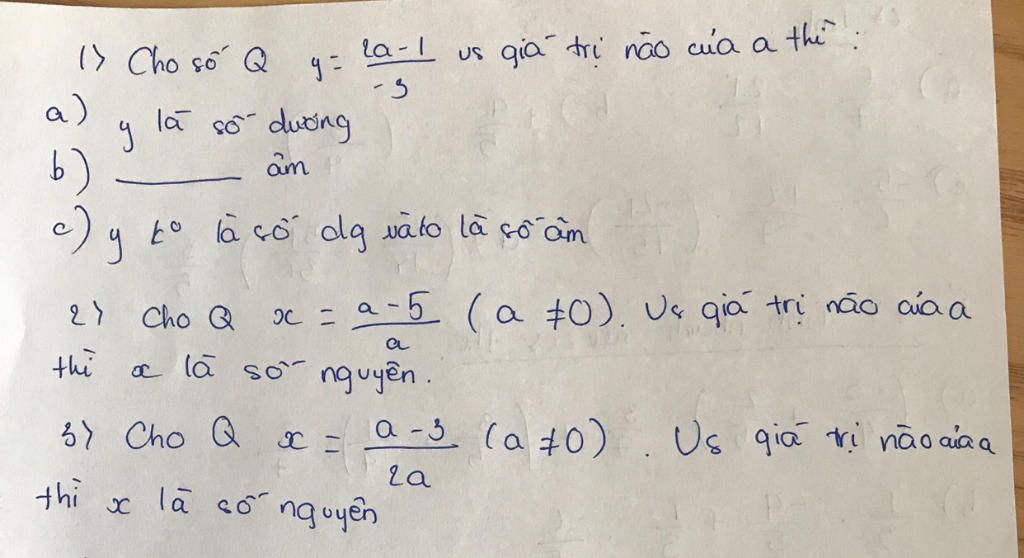 1> Cho số Q y = (2a-1)/-3 vs giá trị nào của a thì:
a) y là số dương
b) ______ âm
c) y ko là số dg và ko là số âm
2> Cho Q x = (a-5)/a (a ≠ 0). Vs giá trị nào của a
thì x là số nguyên.
3> Cho Q x = (a-3)/2a (a ≠ 0). Vs giá trị nào của a
thì x là số nguyên